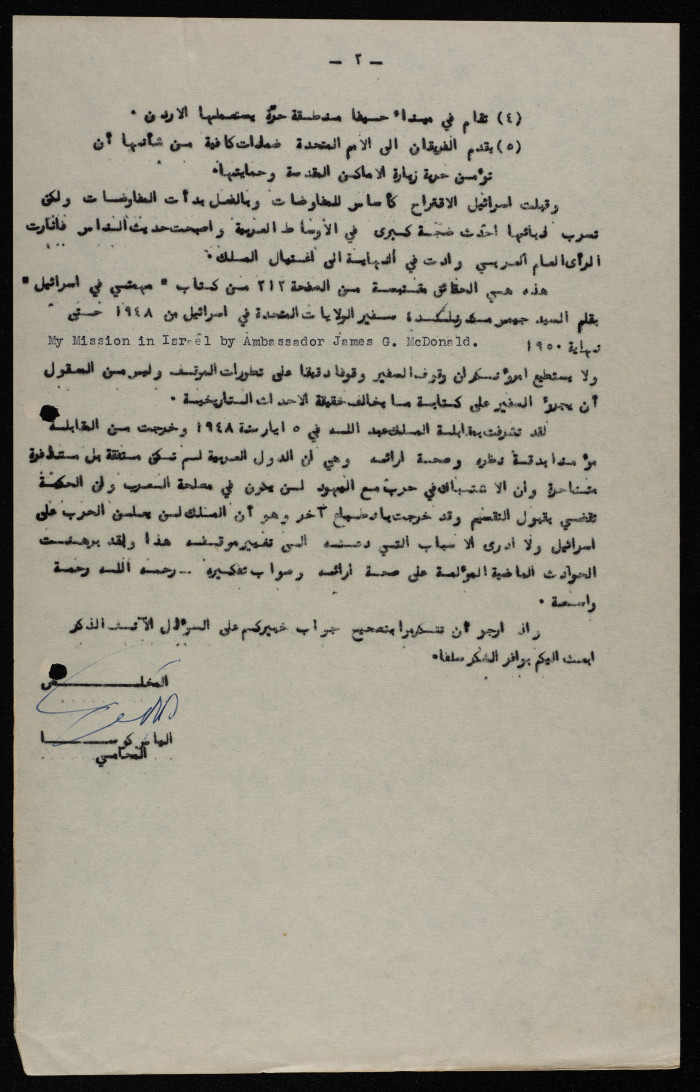 — ٢ —
(٤) تقام في ميناء حيفا منطقة حرّة يستعملها الاردن ٠
(٥) يقدم الفريقان الى الامم المتحدة ضمانات كافية من شأنها أن
تؤمن حرية زيارة الاماكن المقدسة وحمايتها٠
وقبلت اسرائيل الاقتراح كأساس للمفاوضات وبالفعل بدأت المفاوضات ولكن
تسرب انبائها احدث ضجة كبرى في الأوساط العربية واصبحت حديث الناس فاثارت
الرأى العام العربي وادت في النهاية الى اغتيال الملك ٠
هذه هي الحقائق مقتبسة من الصفحة ٢١٢ من كتاب " مهمتي في اسرائيل "
بقلم السيد جيمس مكدونلد سفير الولايات المتحدة في اسرائيل من ١٩٤٨ حتى
نهاية ١٩٥٠ My Mission in Israel by Ambassador James G. McDonald.
ولا يستطيع امرؤ نكران وقوف السفير وقوفا دقيقا على تطورات الموقف وليس من المعقول
أن يجرؤ السفير على كتابة ما يخالف حقيقة الاحداث التاريخية ٠
لقد تشرفت بمقابلة الملك عبد الله في ٥ ايار سنة ١٩٤٨ وخرجت من المقابلة
مؤمنا بدقة نظره وصحة ارائه وهي ان الدول العربية لم تكن متفقة بل متنافرة
متناحرة وان الاشتباك في حرب مع اليهود لن يكون في مصلحة العرب وان الحكمة
تقضي بقبول التقسيم وقد خرجت بانطباع آخر وهو أن الملك لن يعلن الحرب على
اسرائيل ولا ادرى الاسباب التي دعته الى تغيير موقفه هذا ولقد برهنت
الحوادث الماضية المؤلمة على صحة ارائه وصواب تفكيره .. رحمه الله رحمة
واسعة ٠
واذ ارجو أن تتكرموا بتصحيح جواب خبيركم على السؤال الآنف الذكر
ابعث اليكم بوافر الشكر سلفا٠
المخلص
الياس كوسا
المحامي